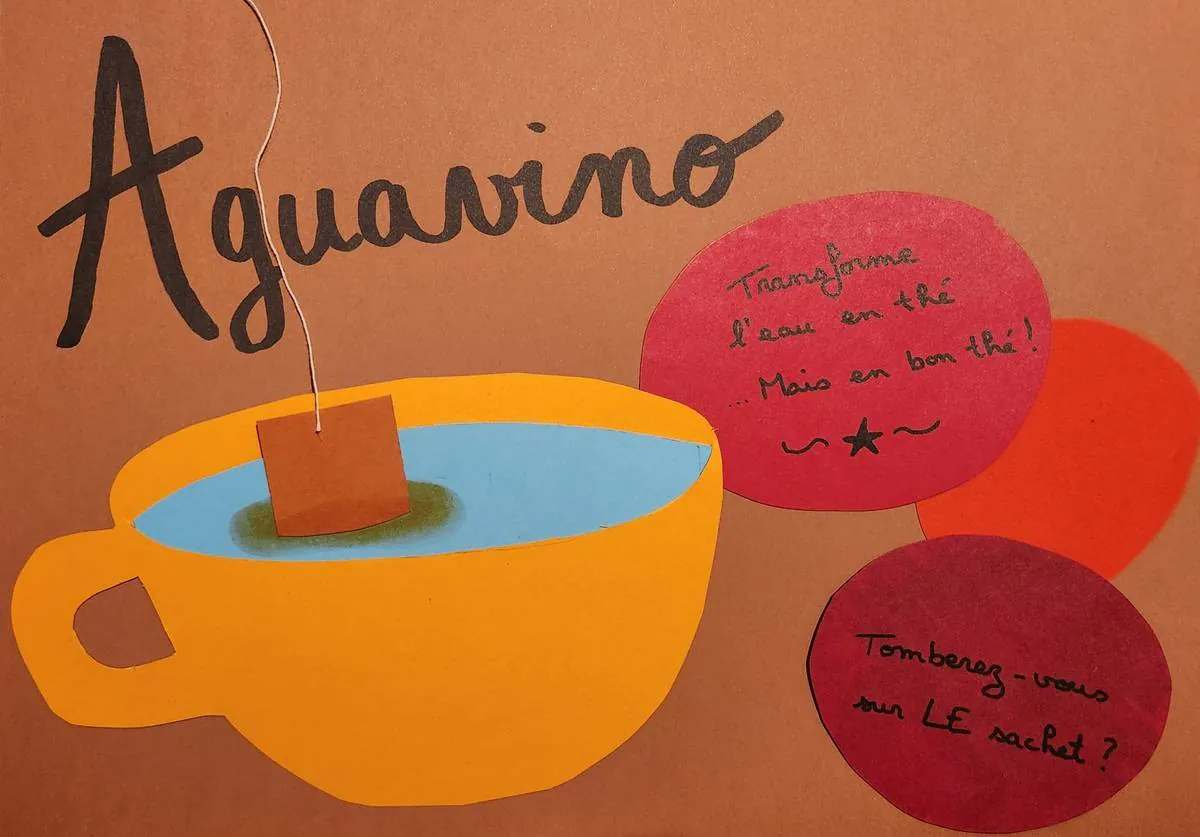 Aguavino
Transforme
l'eau en thé
...Mais en bon thé!
Tomberez-vous
sur LE sachet ?